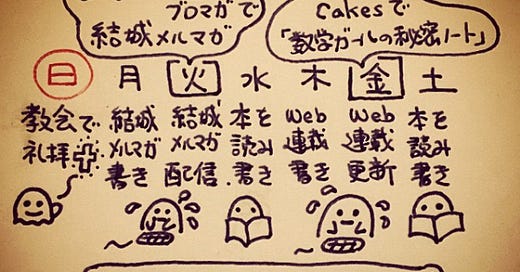 ブロマガで
結城メルマガ
Cakesで
「数学ガールの秘密ノート」
日 月 火 水 木 金 土
教会で 結城 結城 本を Web Web 本を
礼拝 メルマガ メルマガ 読み 連載 連載 読み
書き 配信 書き 書き 更新 書き